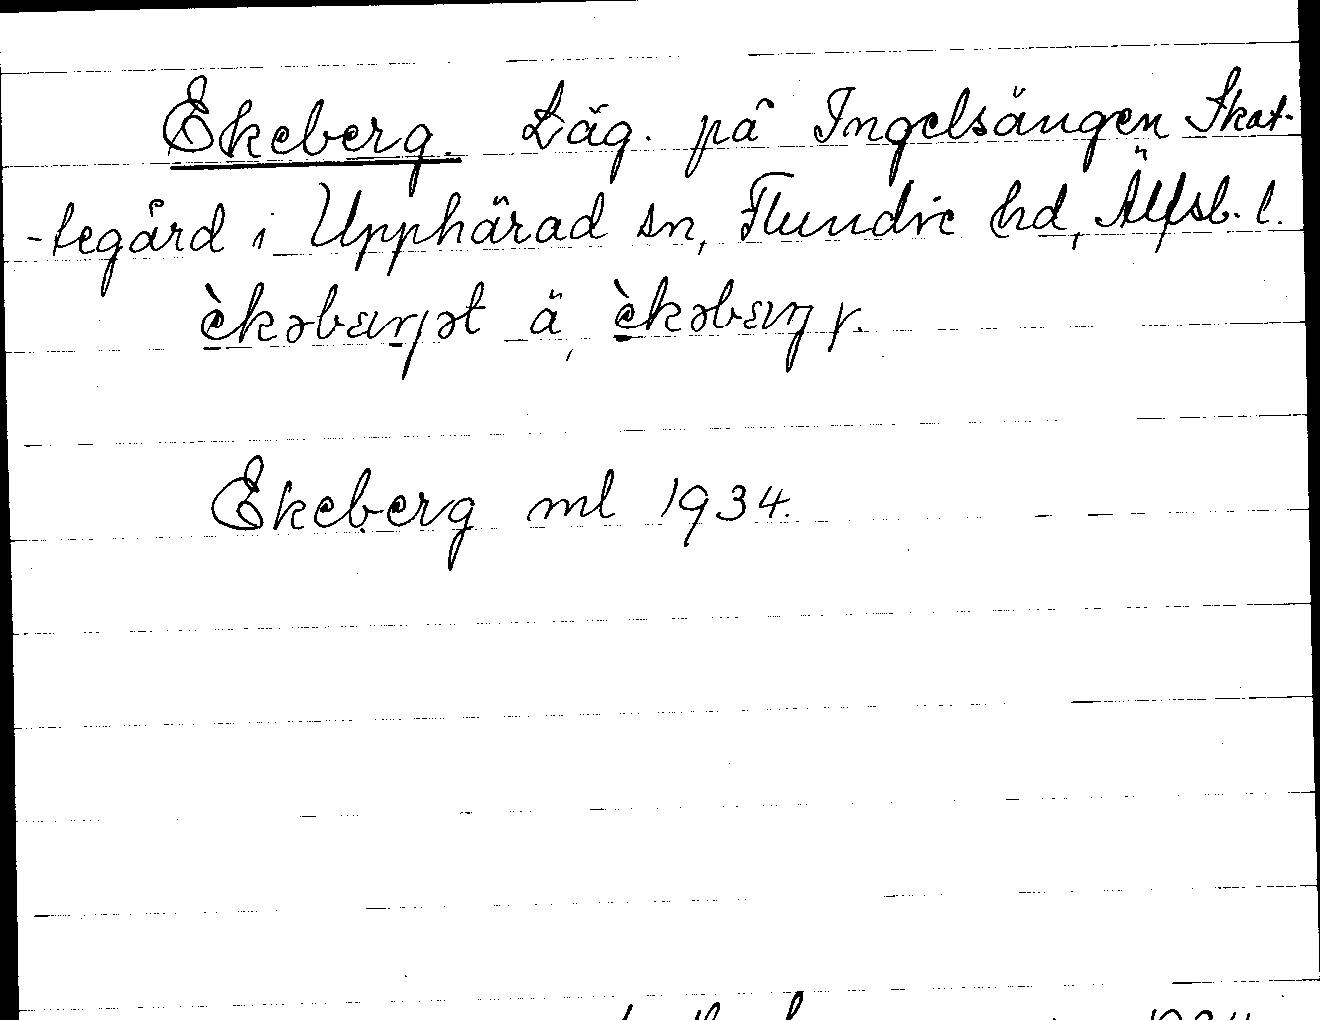 Ekeberg. Läg. på Ingelsängen Skat-
-tegård i Upphärad sn, Flundre hd, Älfsb. l.
ὲkəbærjət ä, ὲkəbærj
Ekeberg ml 1934.
1934